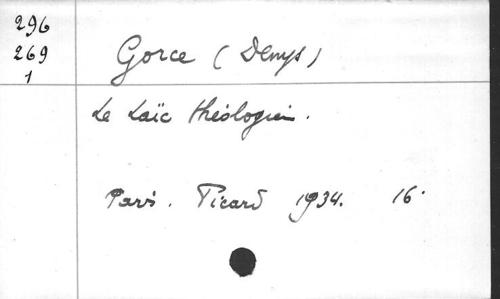 296
269
1
Gorce (Denys)
Le Laïc théologien.
Paris. Picard 1934. 16°